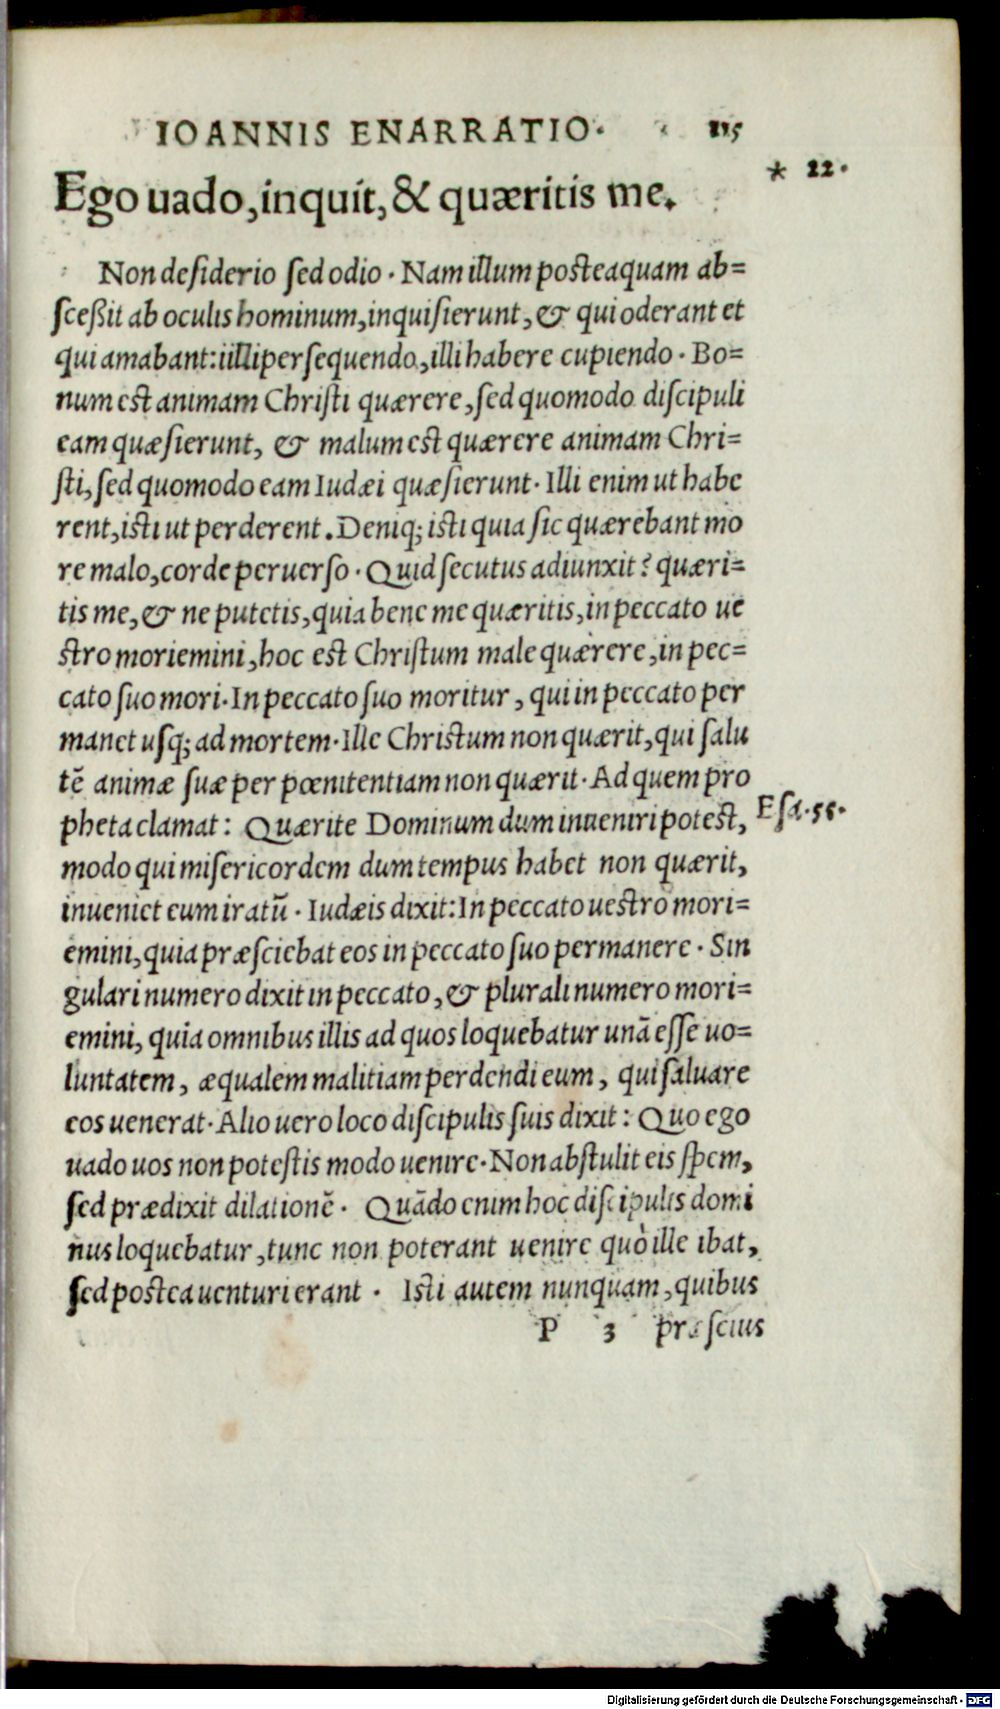 IOANNIS ENARRATIO· 115
* 22·
Ego uado, inquit, & quæritis me.
Non desiderio sed odio · Nam illum posteaquam ab=
sceßit ab oculis hominum, inquisierunt, & qui oderant et
qui amabant: iilli persequendo, illi habere cupiendo · Bo=
num est animam Christi quærere, sed quomodo discipuli
eam quæsierunt, & malum est quærere animam Chri=
sti, sed quomodo eam Iudæi quæsierunt · Illi enim ut habe
rent, isti ut perderent . Deniq; isti quia sic quærebant mo
re malo, corde peruerso · Quid secutus adiunxit? quæri=
tis me, & ne putetis, quia bene me quæritis, in peccato ue
stro moriemini, hoc est Christum male quærere, in pec=
cato suo mori · In peccato suo moritur, qui in peccato per
manet usq; ad mortem · Ille Christum non quærit, qui salu
tē animæ suæ per pœnitentiam non quærit · Ad quem pro
pheta clamat: Quærite Dominum dum inueniri potest,
Esa·55·
modo qui misericordem dum tempus habet non quærit,
inueniet eum iratū · Iudæis dixit: In peccato uestro mori=
emini, quia præsciebat eos in peccato suo permanere · Sin
gulari numero dixit in peccato, & plurali numero mori=
emini, quia omnibus illis ad quos loquebatur unā esse uo=
luntatem, æqualem malitiam perdendi eum, qui saluare
eos uenerat · Alio uero loco discipulis suis dixit: Quo ego
uado uos non potestis modo uenire · Non abstulit eis spem,
sed prædixit dilationē · Quādo enim hoc discipulis domi
nus loquebatur, tunc non poterant uenire quò ille ibat,
sed postea uenturi erant · Isti autem nunquam, quibus
P 3 præscius
Digitalisierung gefördert durch die Deutsche Forschungsgemeinschaft · DFG